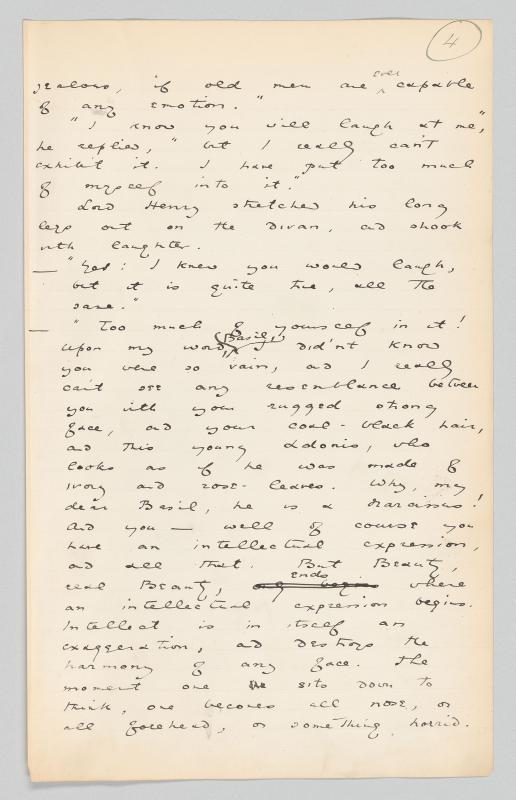 4
jealous, if old men are ever capable
of any emotion."
"I know you will laugh at me",
he replied, "but I really can't
exhibit it. I have put too much
of myself into it."
Lord Henry stretched his long
legs out on the divan, and shook
with laughter.
— "Yes: I knew you would laugh,
but it is quite true, all the
same."
— "Too much of yourself in it!
Upon my word, Basil, I did'nt know
you were so vain, and I really
can't see any resemblance between
you with your rugged strong
face, and your coal-black hair,
and this young Adonis, who
looks as if he was made of
ivory and rose-leaves. Why, my
dear Basil, he is a Narcissus!
And you — well of course you
have an intellectual expression,
and all that. But Beauty,
real Beauty, ends where
an intellectual expression begins.
Intellect is in itself an
exaggeration, and destroys the
harmony of any face. The
moment one sits down to
think, one becomes all nose, or
all forehead, or something horrid.